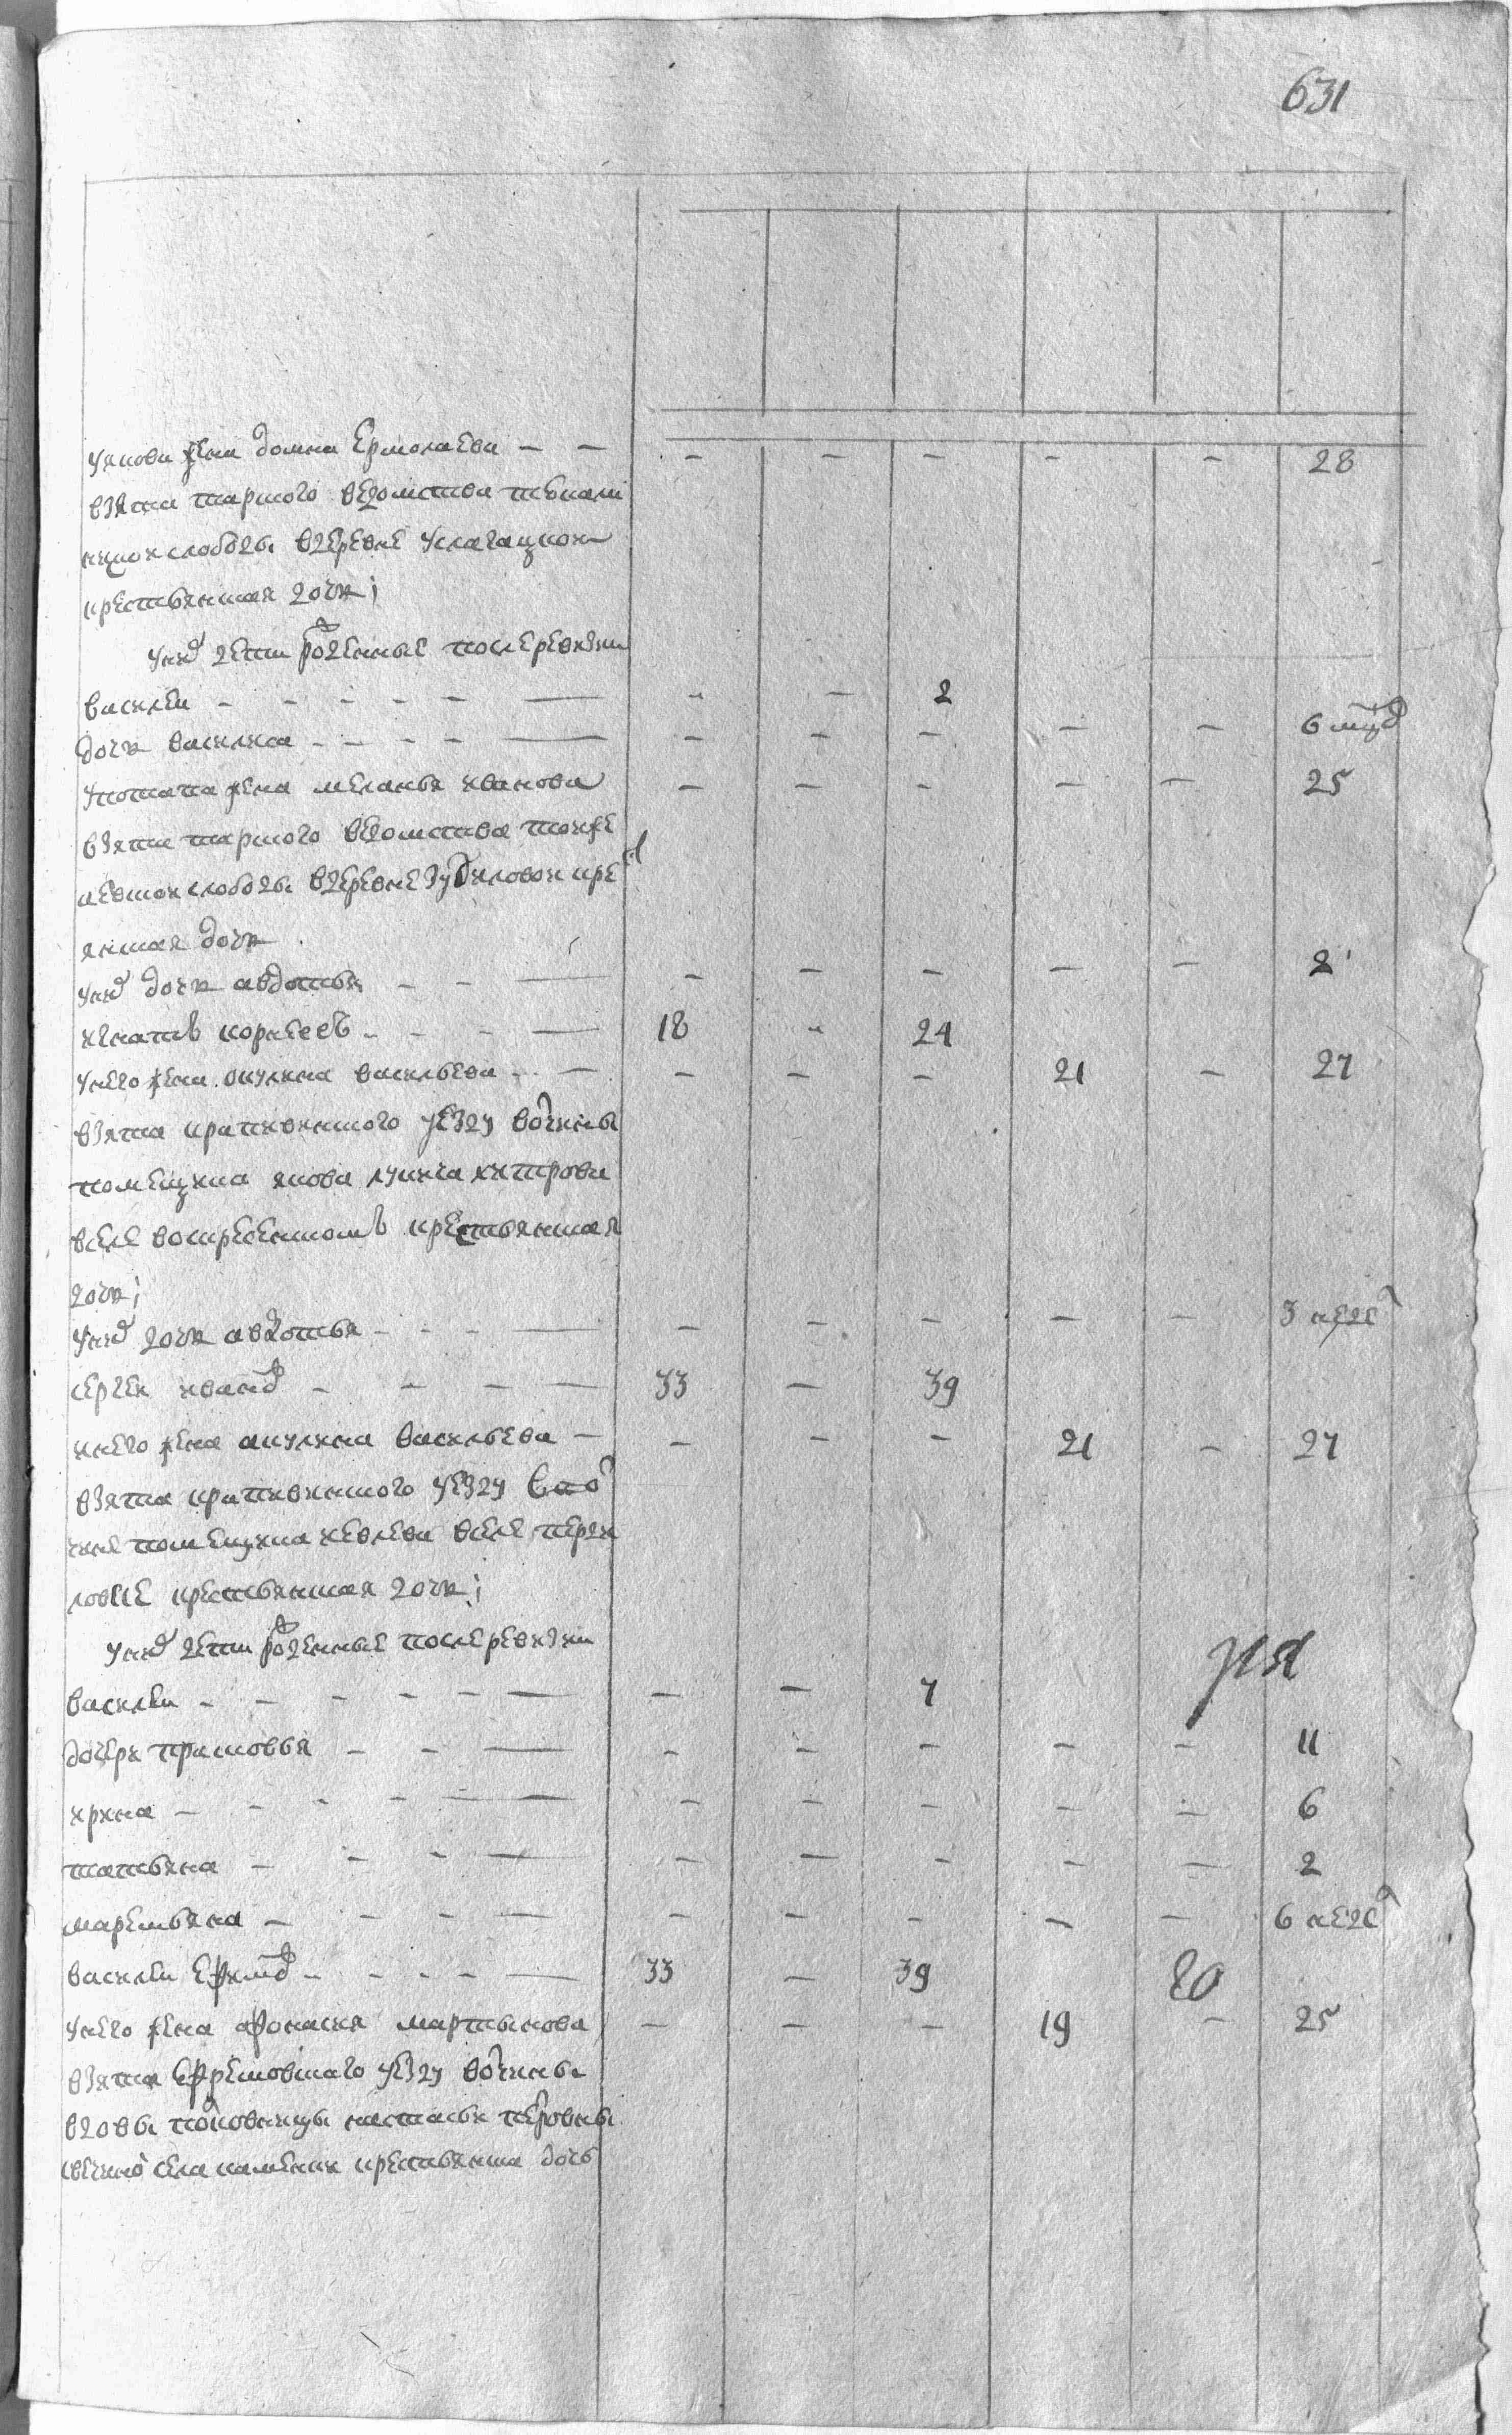 631
у якова жена домна Ермолаева — — - - - - - 28
взята тарского ведомства
слободы в деревне
крестьянская дочь;
у них дети рожденные после ревизии
василеи - - - - - — - - 2
дочь василиса - - - - — - - - - - 6 мцов
у потапа жена меланья иванова - - - - - 25
взята тарского ведомства
слободы в деревне зубиловои крест
янская дочь
у них дочь авдотья - - — - - - - - 2
игнатъ корнеевъ - - - — 18 - 24
у него жена акулина васильева - — - - - 21 - 27
взята крапивенского уезду вотчины
помещика якова лукича хитрова
в селе воскресенскомъ крестьянская
дочь;
у них дочь авдотья - - - — - - - - - 3 недел
сергеи иванов - - - — 33 - 39
у него жена акулина васильева — - - - 21 - 27
взята крапивенского уезду в вот
чине помещика в селе
крестьянская дочь;
у них дети рожденные после ревизии
василеи - - - - - — - - 7
дочери прасковья - - — - - - - - 11
ирина - - - - - — - - - - - 6
татьяна - - - — - - - - - 2
маремьяна - - - — - - - - - 6 недел
василеи ефимов - - - - — 33 - 39
20
у него жена афонасия мартынова - - - 19 - 25
взята Ефремовского уезду вотчины
вдовы полковницы настасьи петровны
села каменки крестьянска дочь